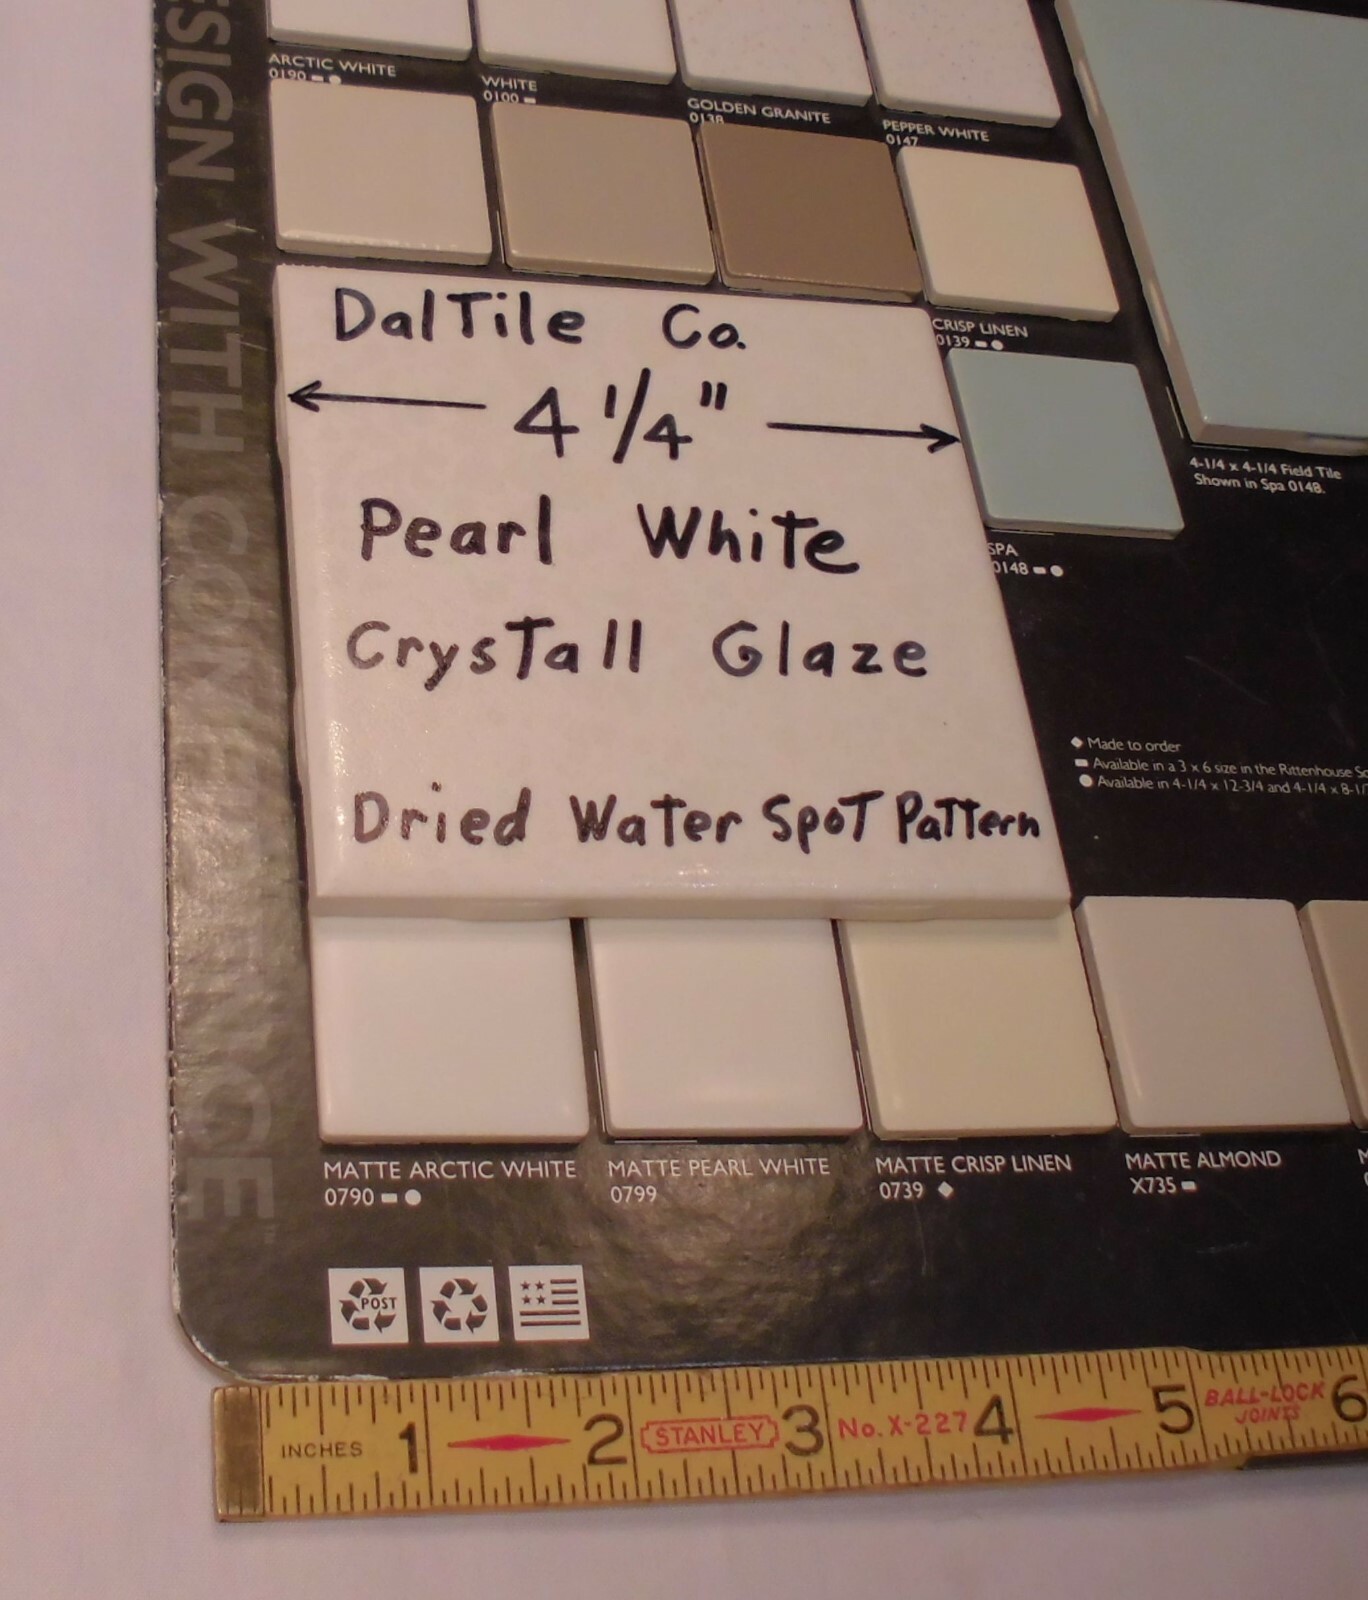 DESIGN WITH CONFIDENCE
ARCTIC WHITE
0190
WHITE
0100
GOLDEN GRANITE
0138
PEPPER WHITE
0147
DalTile Co.
4 1/4"
Pearl White
CrysTall Glaze
Dried Water SpoT PaTTern
CRISP LINEN
0139
4-1/4 x 4-1/4 Field Tile
Shown in Spa 0148.
SPA
0148
Made to order
Available in a 3 x 6 size in the Rittenhouse
Available in 4-1/4 x 12-3/4 and 4-1/4 x
MATTE ARCTIC WHITE
0790
MATTE PEARL WHITE
0799
MATTE CRISP LINEN
0739
MATTE ALMOND
X735
POST
INCHES 1 2 STANLEY 3 No. X-227 4 5 BALL-LOCK JOINTS 6